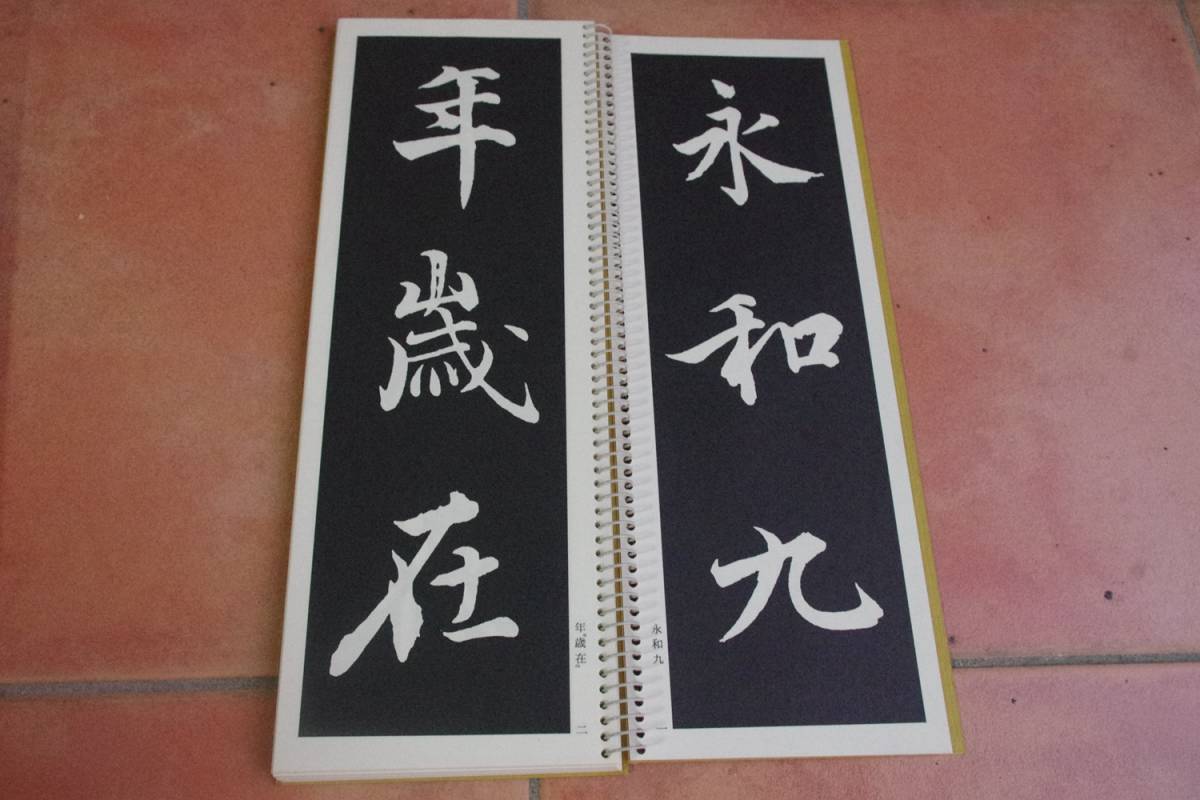 永和九
永和九
一
年歳在
年歳在
二